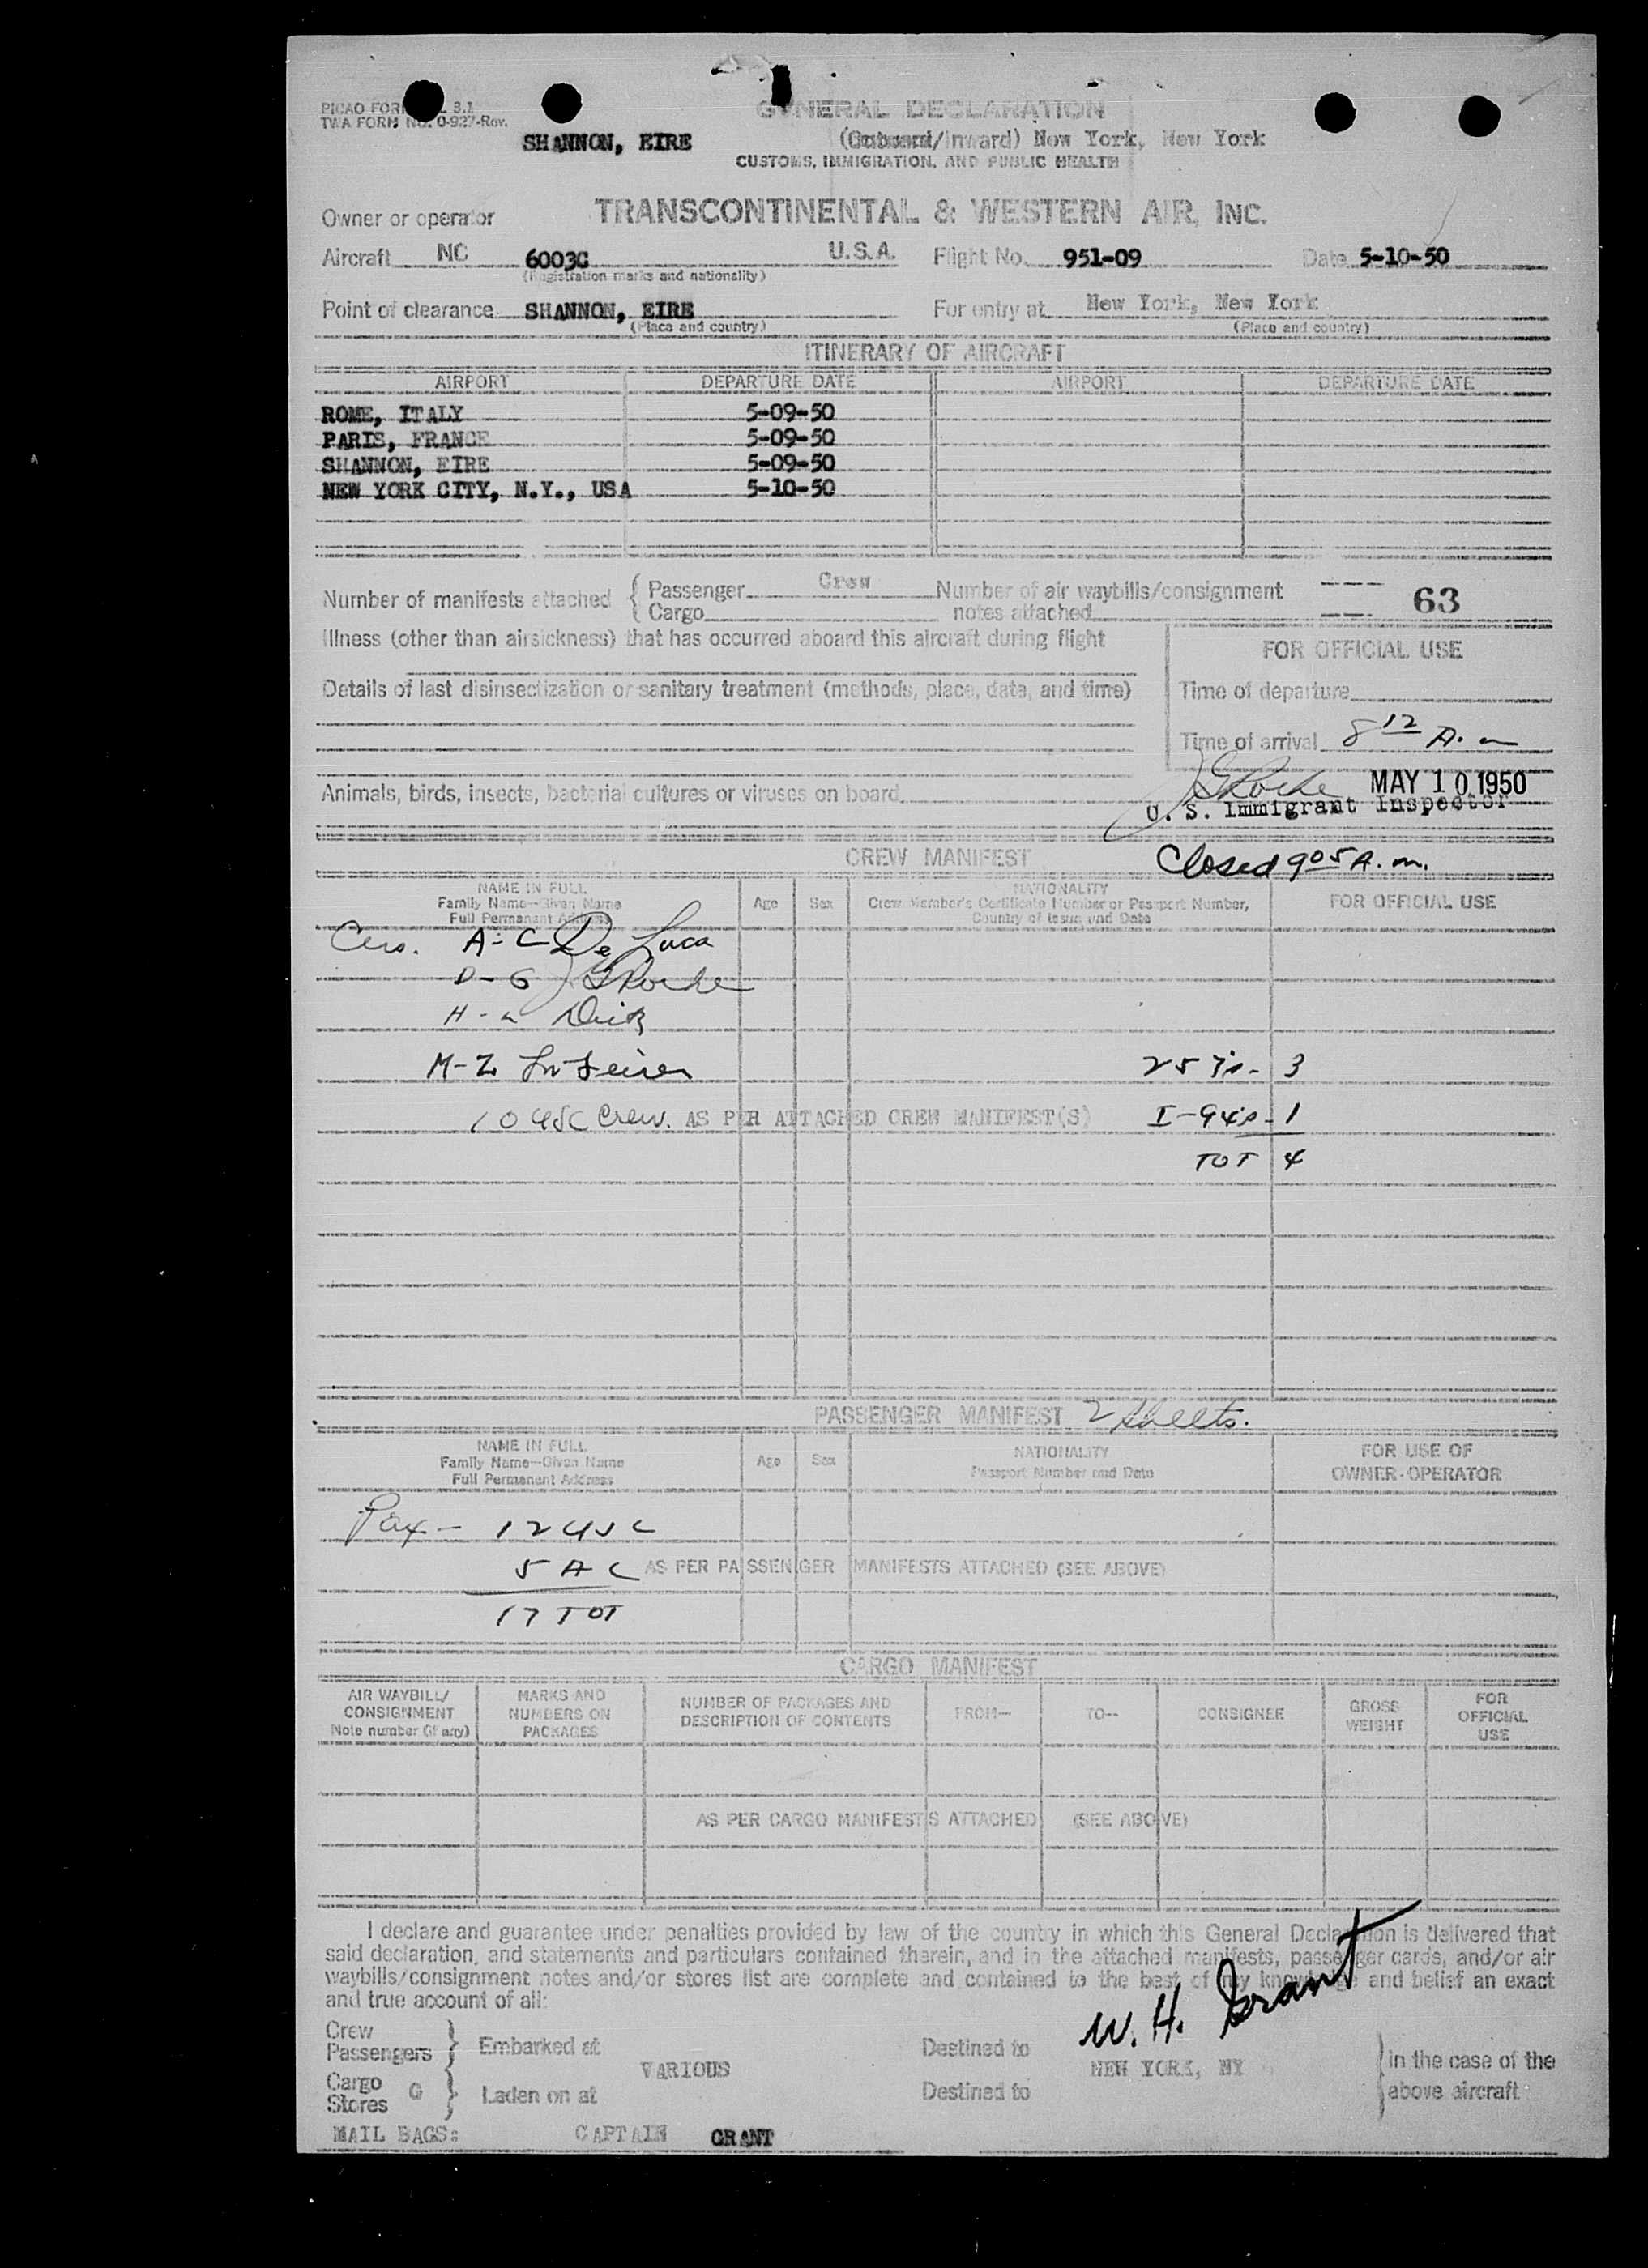 PICAO FORM 3.1
TWA FORM NO. 0-927-Rev.
GENERAL DECLARATION
SHANNON, EIRE (Outward/Inward) New York, New York
CUSTOMS, IMMIGRATION, AND PUBLIC HEALTH
Owner or operator TRANSCONTINENTAL & WESTERN AIR, INC.
Aircraft NC 6003C U.S.A. Flight No. 951-09 Date 5-10-50
(Registration marks and nationality)
Point of clearance SHANNON, EIRE For entry at New York, New York
(Place and country) (Place and country)
ITINERARY OF AIRCRAFT
AIRPORT DEPARTURE DATE AIRPORT DEPARTURE DATE
ROME, ITALY 5-09-50
PARIS, FRANCE 5-09-50
SHANNON, EIRE 5-09-50
NEW YORK CITY, N.Y., USA 5-10-50
Number of manifests attached { Passenger Crew Number of air waybills/consignment 63
Cargo notes attached
Illness (other than airsickness) that has occurred aboard this aircraft during flight
FOR OFFICIAL USE
Details of last disinsectization or sanitary treatment (methods, place, date, and time)
Time of departure
Time of arrival 8 12 A.m
MAY 10 1950
Animals, birds, insects, bacterial cultures or viruses on board
U. S. Immigrant Inspector
CREW MANIFEST Closed 9 05 A.m.
NAME IN FULL
Family Name—Given Name
Full Permanent Address
Age Sex
NATIONALITY
Crew Member's Certificate Number or Passport Number,
Country of Issue and Date
FOR OFFICIAL USE
A-C De Luca
D-G JG Roche
H-L
M-Z 3
10 USC Crew. AS PER ATTACHED CREW MANIFEST(S) I-94's - 1
TOT 4
PASSENGER MANIFEST 2 Sheets.
NAME IN FULL
Family Name—Given Name
Full Permanent Address
Age Sex
NATIONALITY
Passport Number and Date
FOR USE OF
OWNER-OPERATOR
Pax - 12 USC
5 A C AS PER PASSENGER MANIFESTS ATTACHED (SEE ABOVE)
17 TOT
CARGO MANIFEST
AIR WAYBILL/
CONSIGNMENT
Note number (if any)
MARKS AND
NUMBERS ON
PACKAGES
NUMBER OF PACKAGES AND
DESCRIPTION OF CONTENTS
FROM— TO— CONSIGNEE
GROSS
WEIGHT
FOR
OFFICIAL
USE
AS PER CARGO MANIFESTS ATTACHED (SEE ABOVE)
I declare and guarantee under penalties provided by law of the country in which this General Declaration is delivered that
said declaration, and statements and particulars contained therein, and in the attached manifests, passenger cards, and/or air
waybills/consignment notes and/or stores list are complete and contained to the best of my knowledge and belief an exact
and true account of all:
W. H. Grant
Crew
Passengers } Embarked at Destined to
VARIOUS NEW YORK, NY } in the case of the
Cargo
Stores G } Laden on at Destined to above aircraft
MAIL BAGS: CAPTAIN GRANT